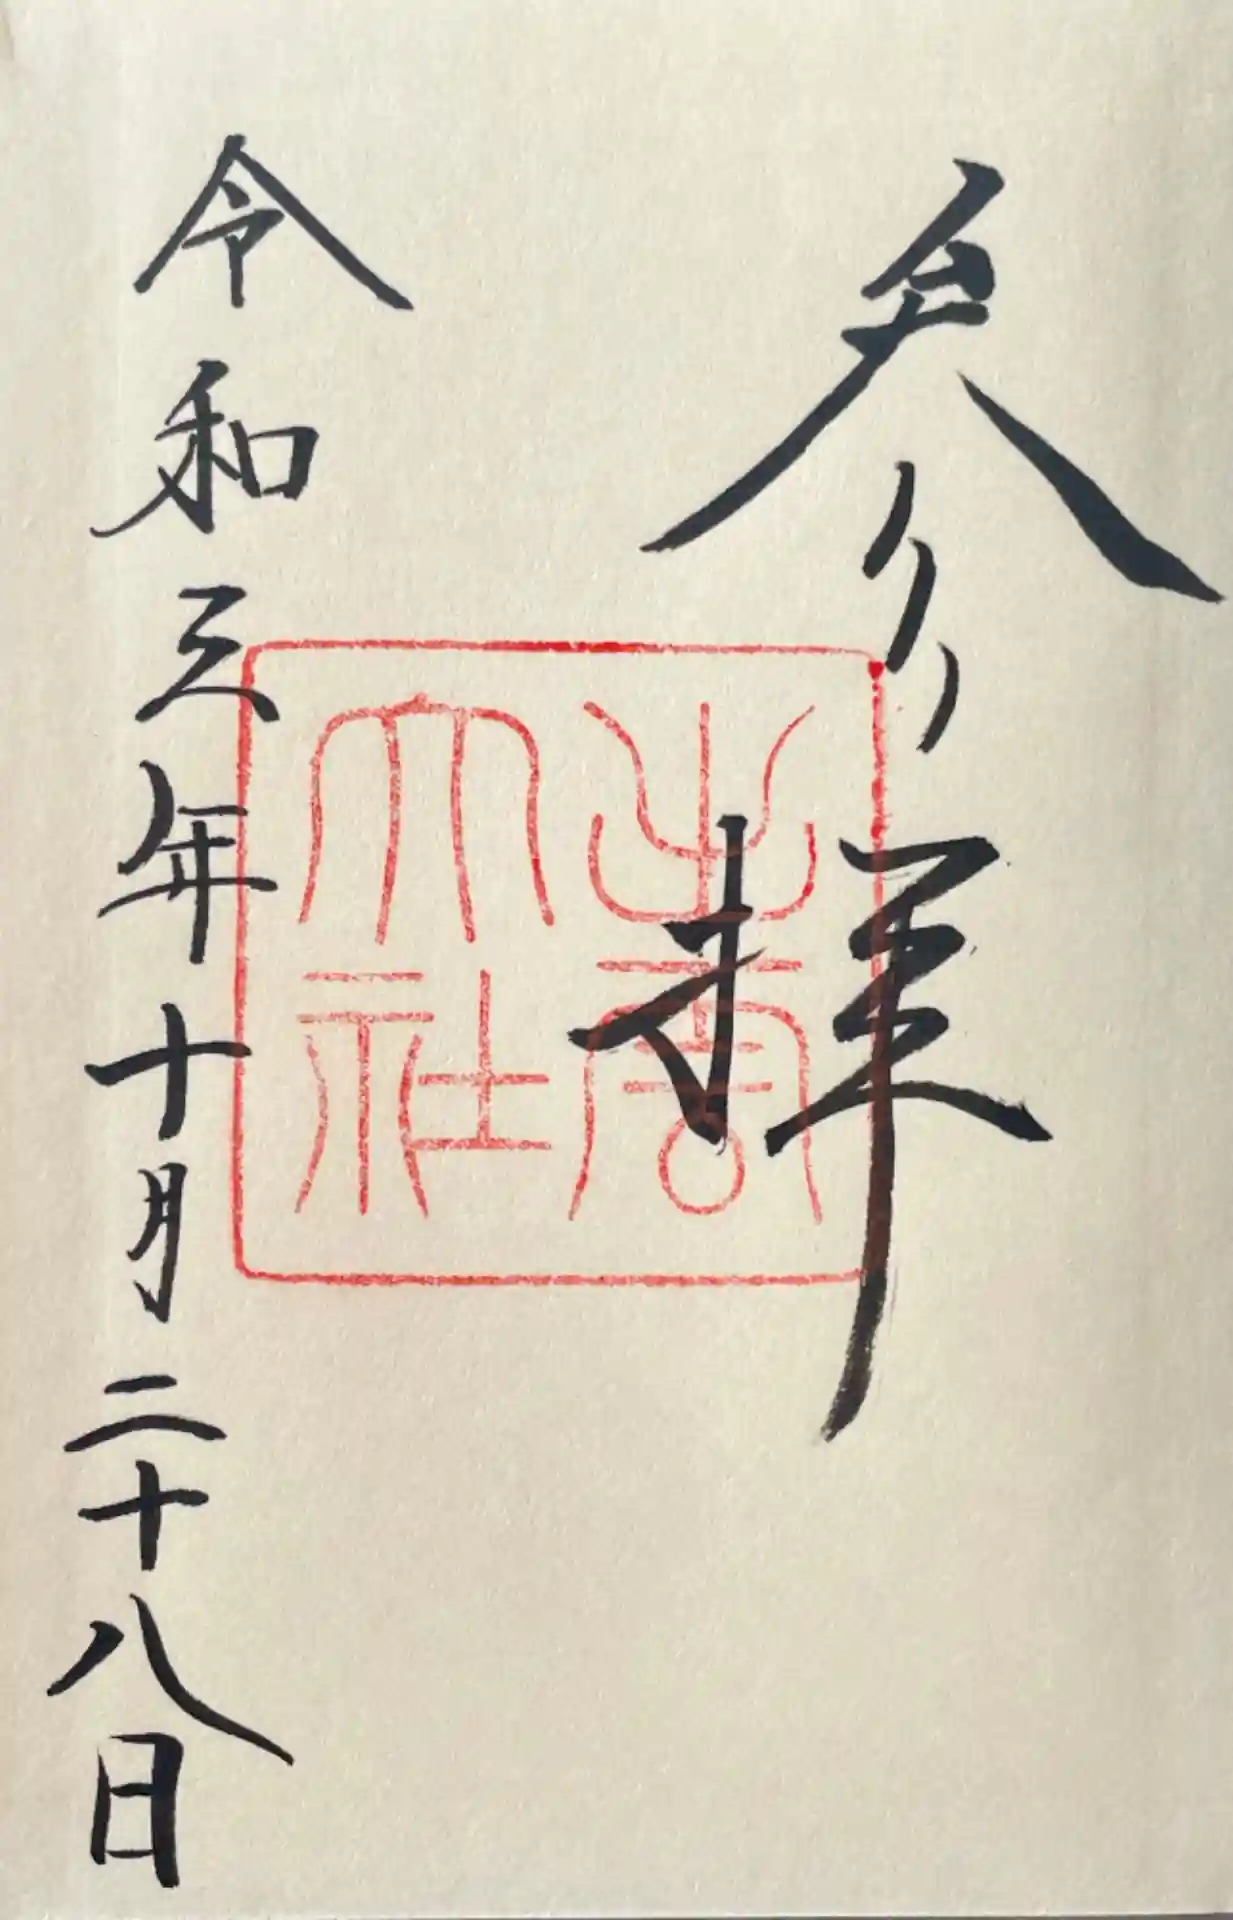 参拝
出雲大社
令和三年十月二十八日